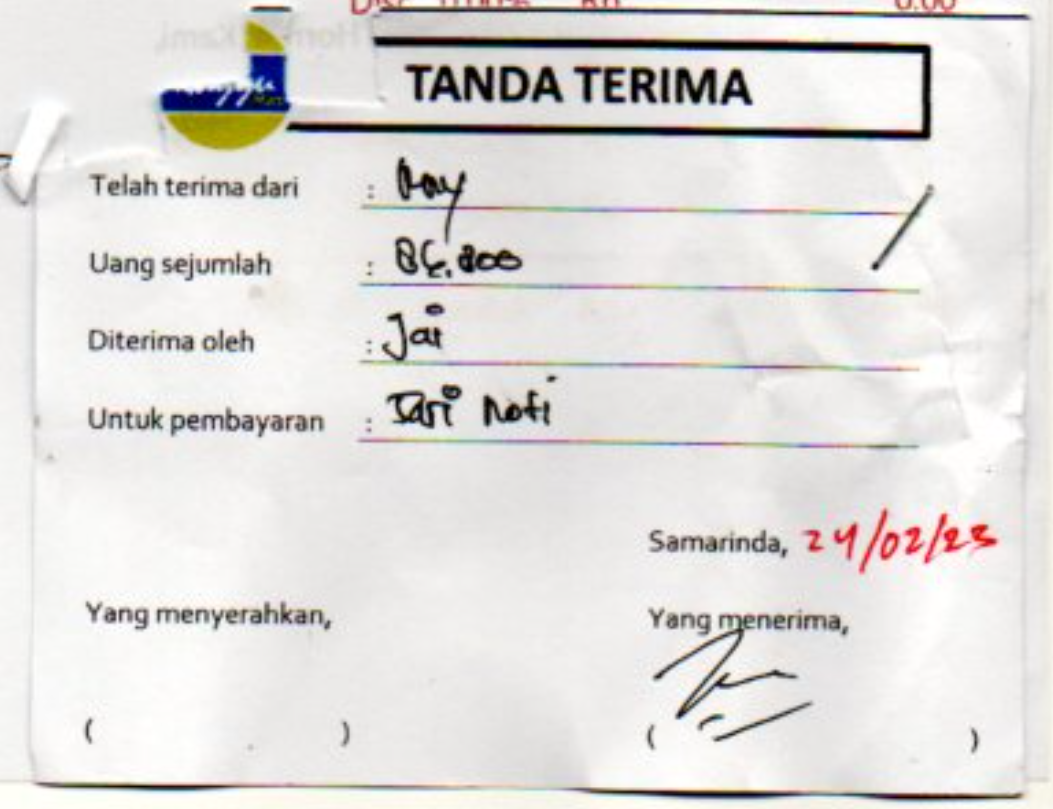 Disc 0.00% Rp 0.00
TANDA TERIMA
Telah terima dari :
Uang sejumlah :
Diterima oleh : Jai
Untuk pembayaran : Sari Roti
Samarinda, 24/02/23
Yang menyerahkan,
Yang menerima,
( )
( )